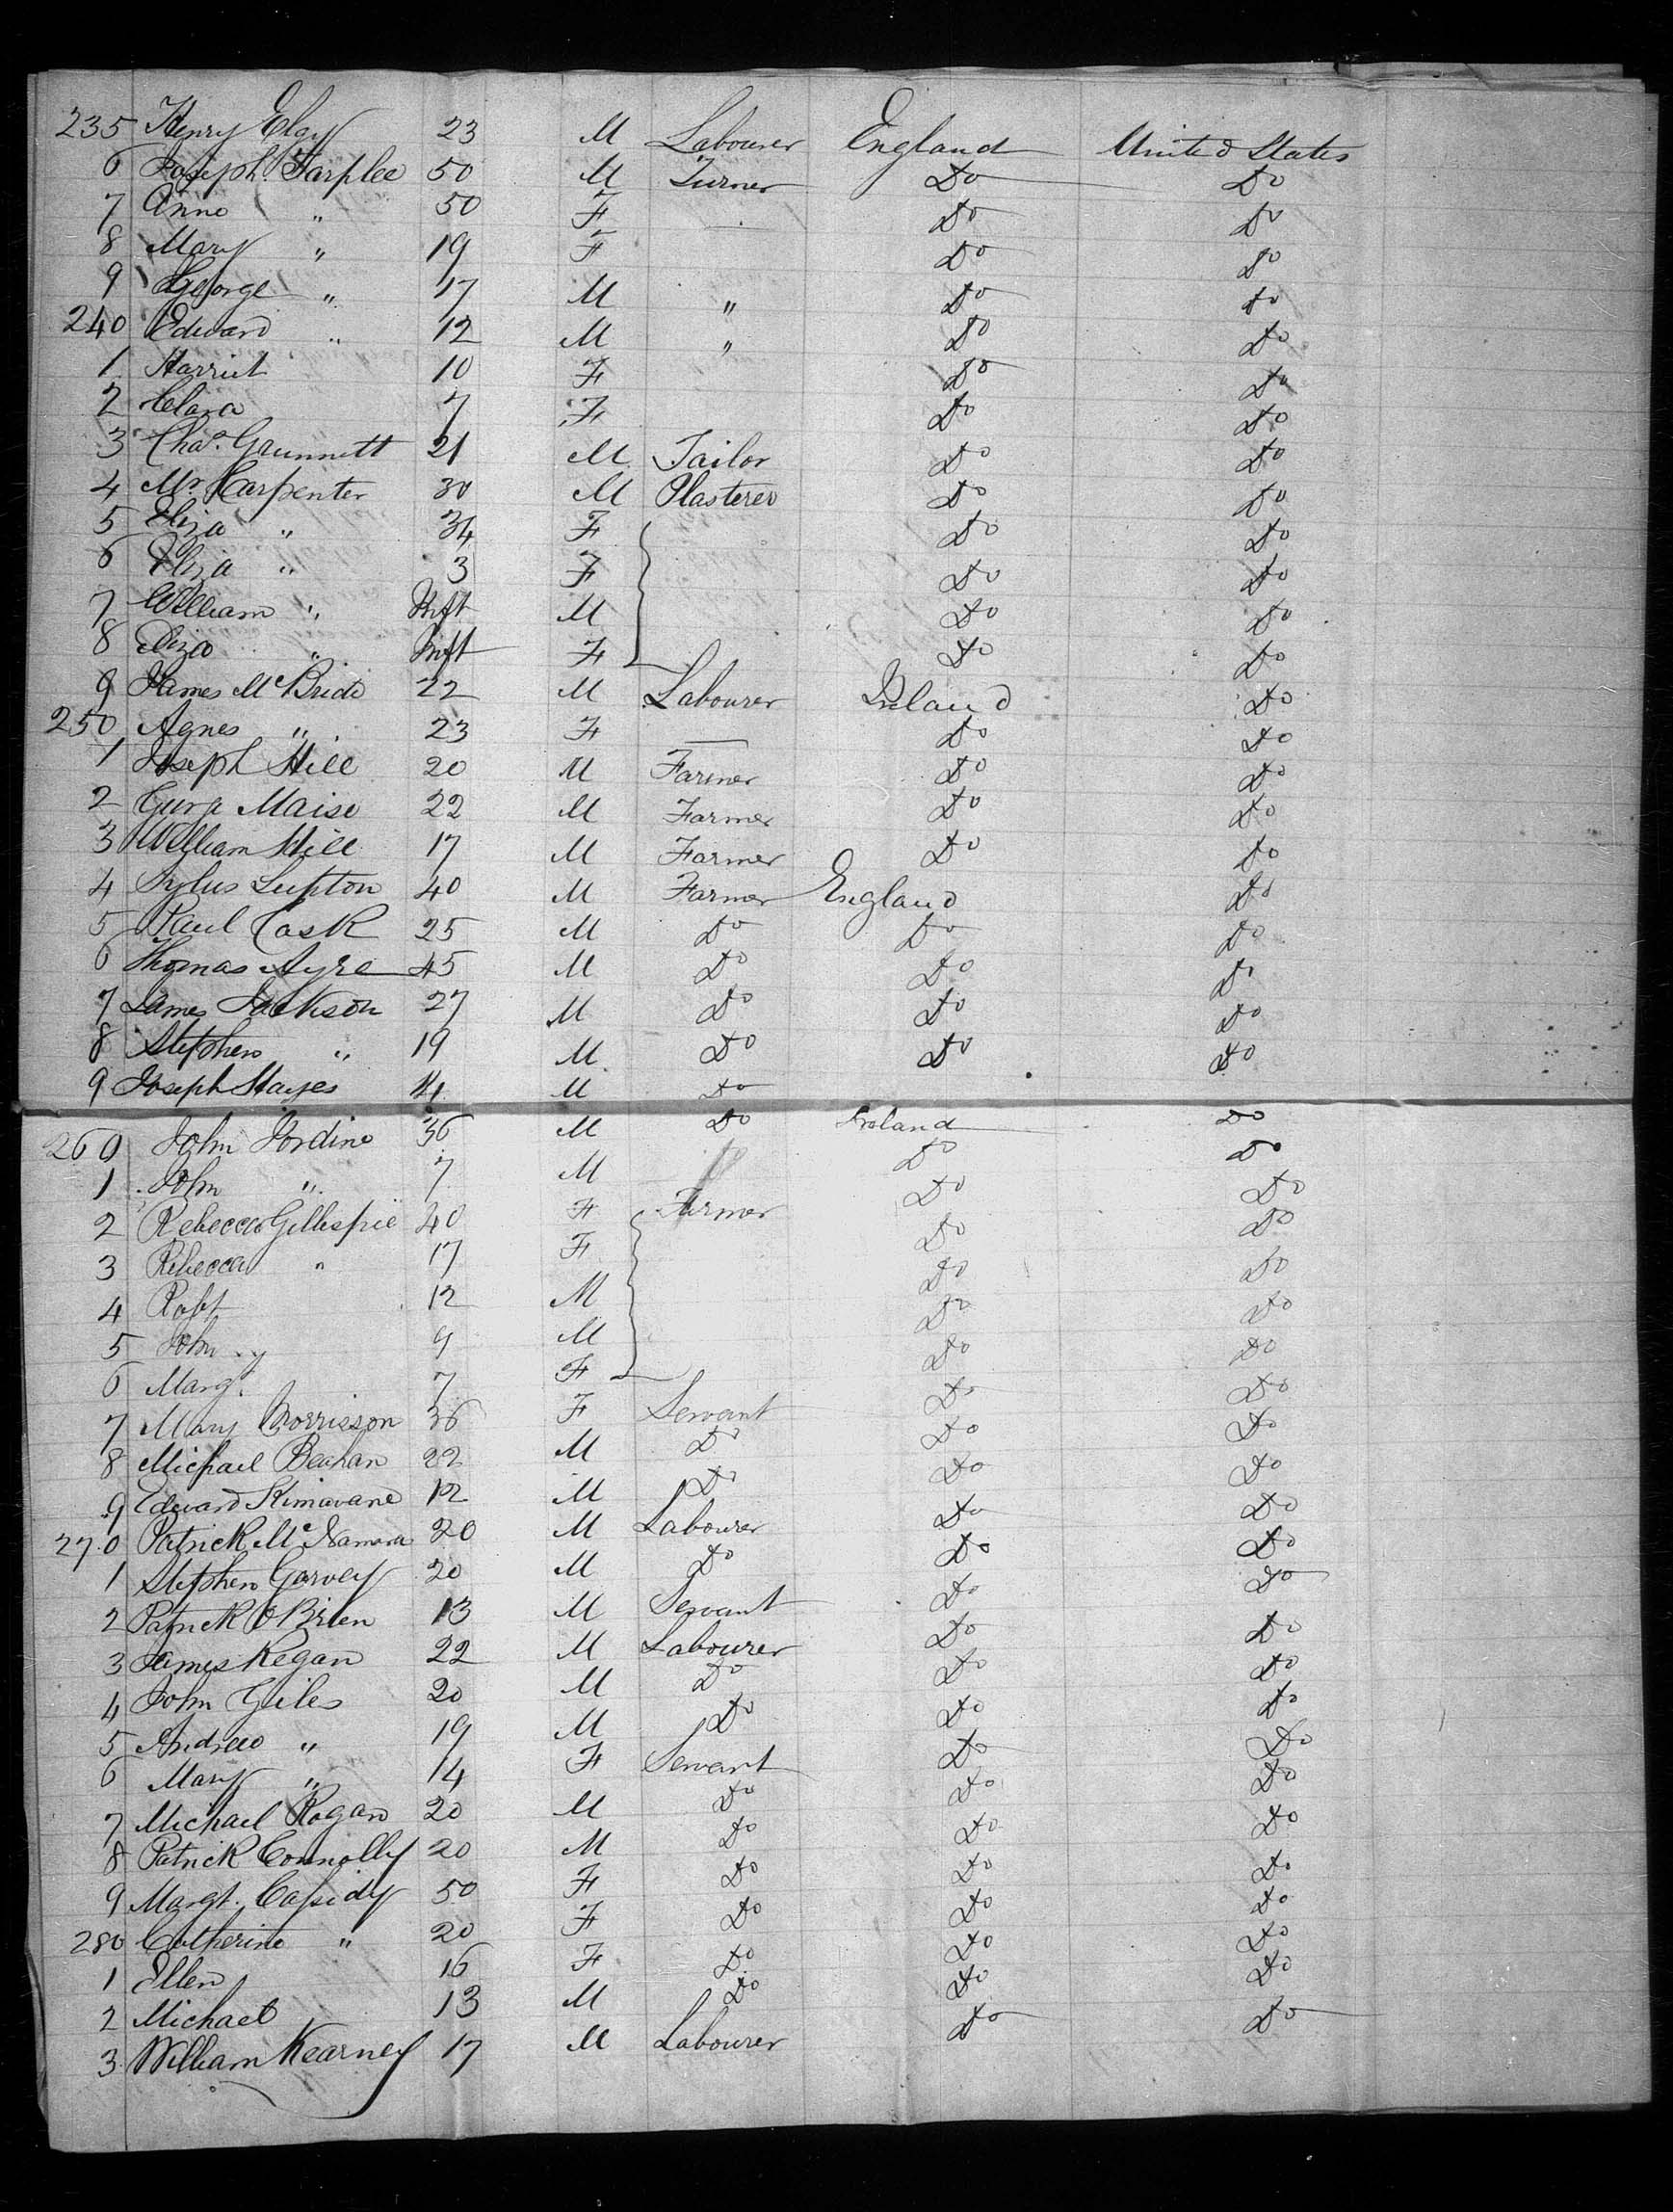 235 Henry Clay 23 M Labourer England United States
6 Joseph Tarplee 50 M Turner Do Do
7 Anne " 50 F Do Do
8 Mary " 19 F Do Do
9 George " 17 M " Do Do
240 Edward " 12 M " Do Do
1 Harriet 10 F Do Do
2 Clara 7 F Do Do
3 Chas. Grunnett 21 M Tailor Do Do
4 Mr Carpenter 30 M Plasterer Do Do
5 Eliza " 34 F Do Do
6 Eliza " 3 F Do Do
7 William " Inft M Do Do
8 Eliza " Inft F Do Do
9 James McBride 22 M Labourer Ireland Do
250 Agnes " 23 F — Do Do
1 Joseph Hill 20 M Farmer Do Do
2 Maise 22 M Farmer Do Do
3 William Hill 17 M Farmer Do Do
4 Lupton 40 M Farmer England Do
5 Paul Cask 25 M Do Do Do
6 Thomas Ayre 45 M Do Do Do
7 James Jackson 27 M Do Do Do
8 Stephen " 19 M Do Do Do
9 Joseph Hayes M Do
260 John Jordine 36 M Do Ireland Do
1 John " 7 M Do Do
2 Rebecca Gillespie 40 F Farmer Do Do
3 Rebecca " 17 F Do Do
4 Robt 12 M Do Do
5 John " 9 M Do Do
6 Margt. 7 F Do Do
7 Mary Morrisson 36 F Servant Do Do
8 Michael Beahan 22 M Do Do Do
9 Edward Kinavane 12 M Do Do Do
270 Patrick McNamara 20 M Labourer Do Do
1 Stephen Garvey 20 M Do Do Do
2 Patrick O'Brien 13 M Servant Do Do
3 James Regan 22 M Labourer Do Do
4 John Giles 20 M Do Do Do
5 Andrew " 19 M Do Do Do
6 Mary " 14 F Servant Do Do
7 Michael Rogan 20 M Do Do Do
8 Patrick Connolly 20 M Do Do Do
9 Margt. Cassidy 50 F Do Do Do
280 Catherine " 20 F Do Do Do
1 Ellen 16 F Do Do Do
2 Michael 13 M Do Do Do
3 William Kearney 17 M Labourer Do Do